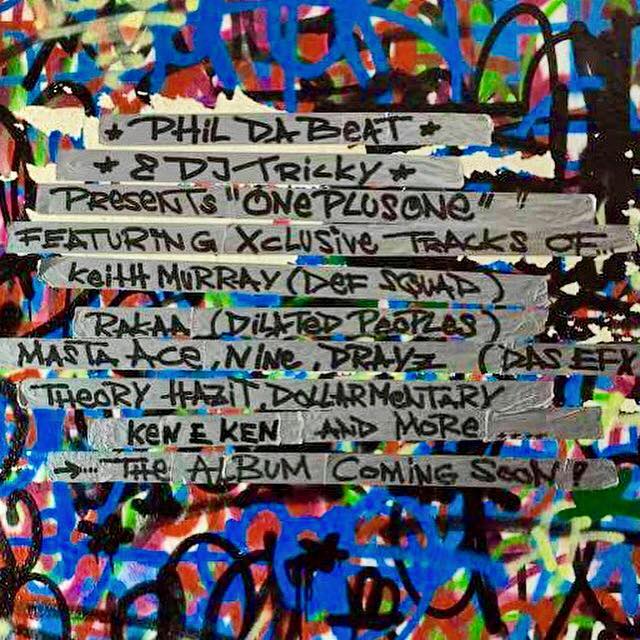 * PHIL DA BEAT *
* & DJ TRICKY *
PRESENTS "ONEPLUSONE"
FEATURING XCLUSIVE TRACKS OF
KEITH MURRAY (DEF SQUAD)
RAKAA (DILATED PEOPLES)
MASTA ACE, NINE, DRAYZ (DAS EFX
THEORY HAZIT, DOLLARMENTARY
KEN E KEN AND MORE
→... THE ALBUM COMING SOON!